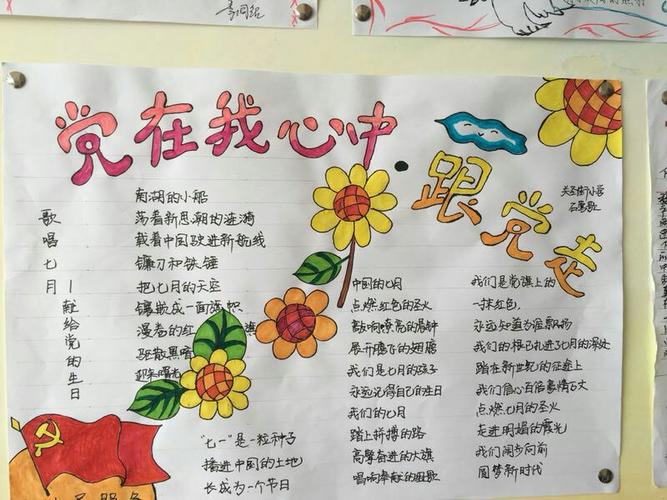 党在我心中·跟党走
天圣街小营
歌唱七月
—献给党的生日
南湖的小船
荡着新思潮的涟漪
载着中国驶进新航线
镰刀和铁锤
把七月的天空
镶嵌成一面旗帜
漫卷的红
驱散黑暗
迎来曙光
"七一"是一粒种子
播进中国的土地
长成为一个节日
中国的七月
点燃红色的圣火
敲响嘹亮的晨钟
展开腾飞的翅膀
我们是七月的孩子
永远记得自己的生日
我们的七月
踏上拼搏的路
高擎奋进的大旗
唱响奉献的旋歌
我们是党旗上的
一抹红色,
永远知道为谁飘扬
我们的根已扎进了七月的深处
踏在新世纪的征途上
我们信心百倍豪情万丈
点燃七月的圣火
走进明媚的霞光
我们阔步向前
圆梦新时代